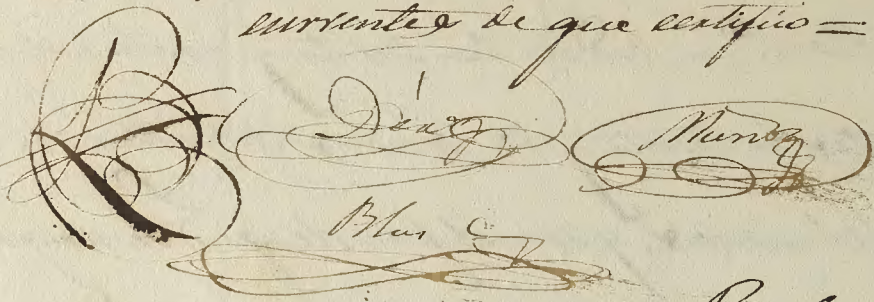 currentes de que certifico =
Díaz Muñoz
Blas